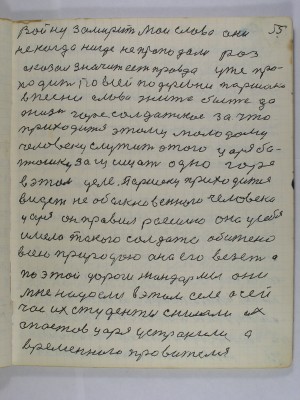 55
войну замирит мои слова они
некогда нигде не пропадали раз
сказал значит ест правда уже про-
ходит по всей по деревни паршака
в песни слова жите были да
горе солдатское за что
приходится этому молодому
человеку служит этого царя ба-
тюшку защищат одно горе
в этом деле. Паршеку приходится
видет не обыкновенного человека
царя он правил россию она у себя
имела такого солдата
всей природою она его везет а
по этой дороги жандармы они
мне надоели в этом селе а сей
час их студенты снимали их
с постов царя устранили а
временного правителя